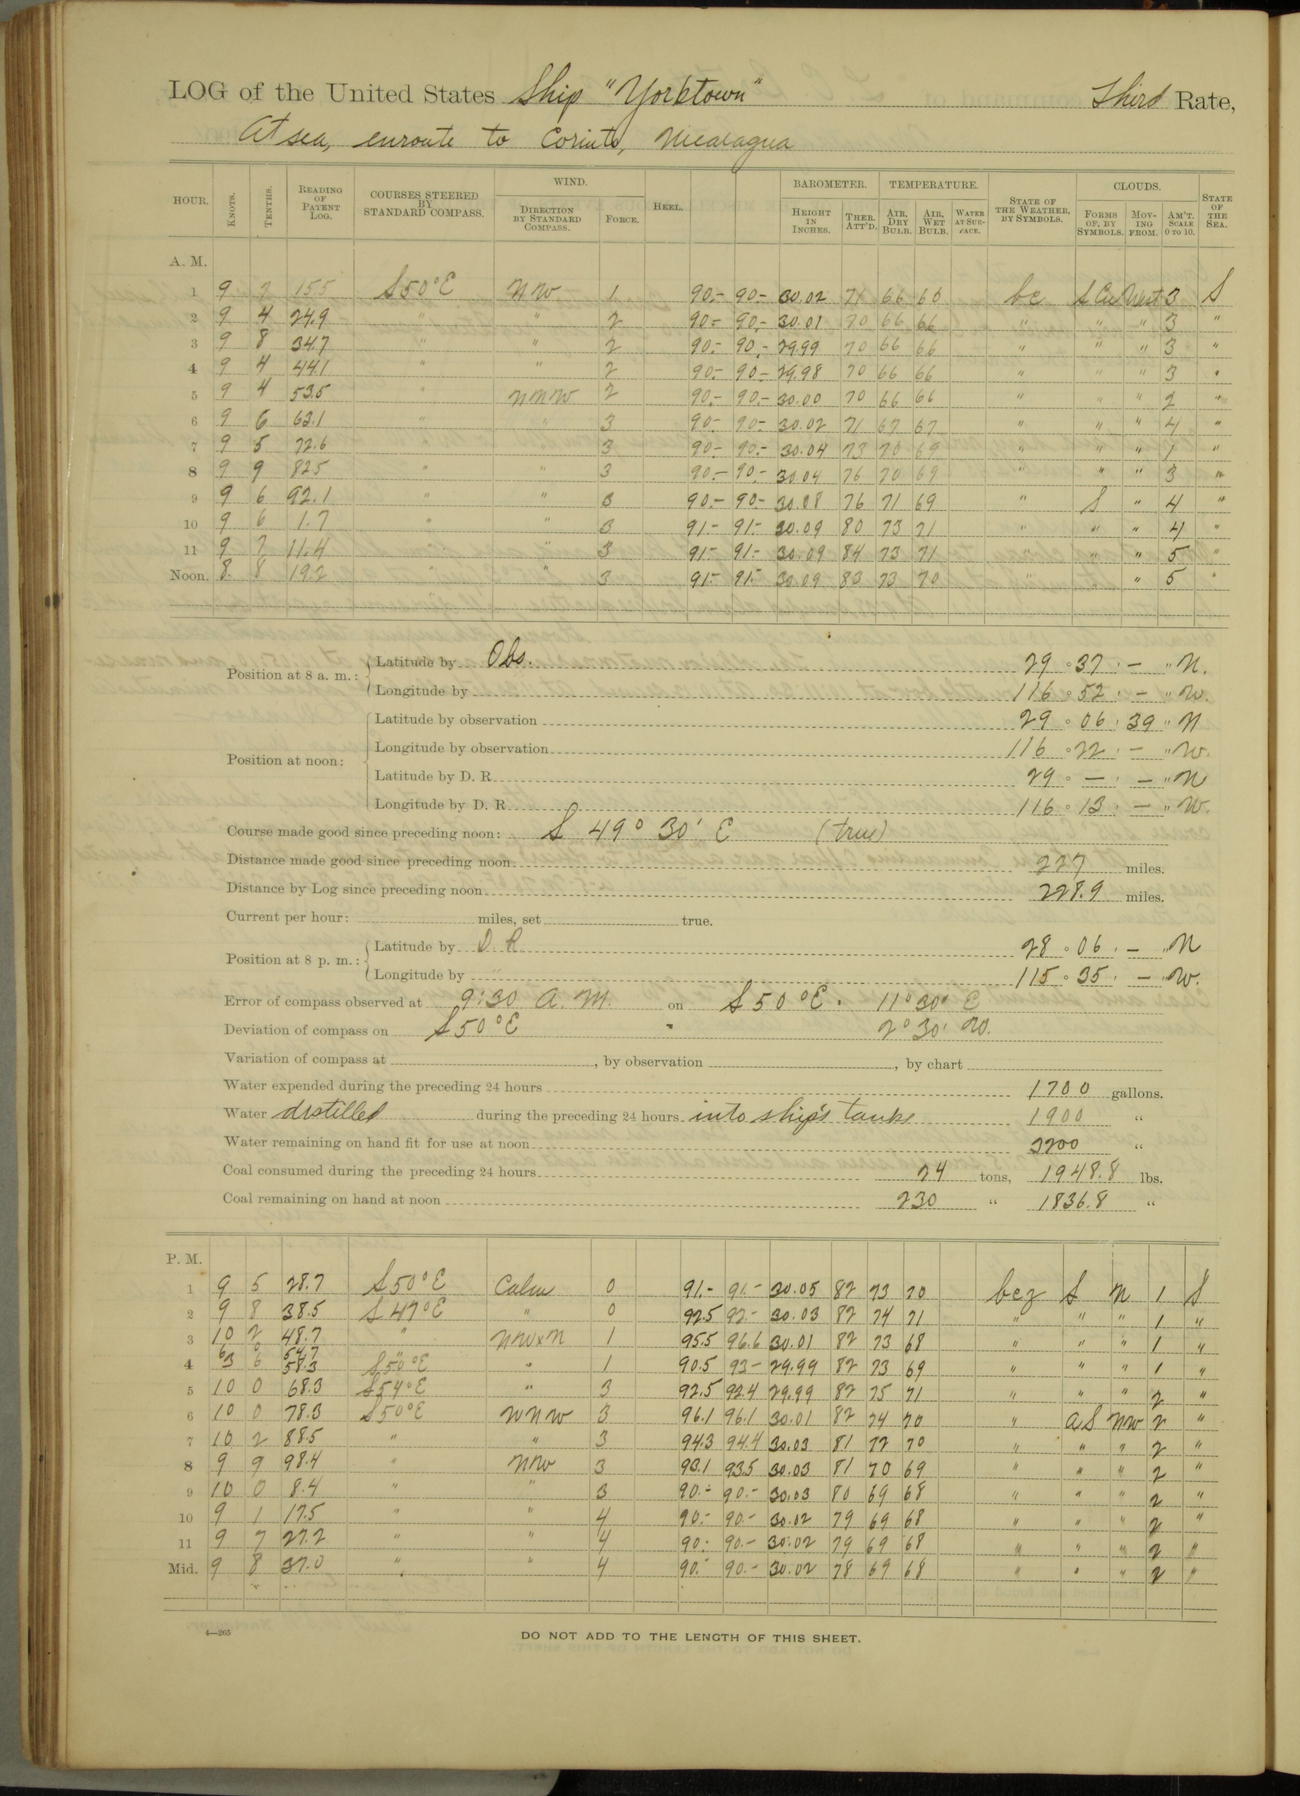 LOG of the United States Ship "Yorktown" Third Rate,
At sea, enroute to Corinto, Nicaragua
HOUR. KNOTS. TENTHS. READING OF PATENT LOG. COURSES STEERED BY STANDARD COMPASS. WIND. DIRECTION BY STANDARD COMPASS. FORCE. HEEL. BAROMETER. HEIGHT IN INCHES. THER. ATT'D. TEMPERATURE. AIR, DRY BULB. AIR, WET BULB. WATER AT SURFACE. STATE OF THE WEATHER, BY SYMBOLS. CLOUDS. FORMS OF, BY SYMBOLS. MOVING FROM. AM'T. SCALE 0 TO 10. STATE OF THE SEA.
A. M.
1 9 7 15.5 S 50° E NW 1 90.- 90.- 30.02 71 66 66 bc S Cu West 3 S
2 9 4 24.9 " 2 90.- 90.- 30.01 70 66 66 " " " 3 "
3 9 8 34.7 " " 2 90.- 90.- 29.99 70 66 66 " " " 3 "
4 9 4 44.1 " " 2 90.- 90.- 29.98 70 66 66 " " " 3 "
5 9 4 53.5 " NNW 2 90.- 90.- 30.00 70 66 66 " " " 2 "
6 9 6 63.1 " " 3 90.- 90.- 30.02 71 67 67 " " " 4 "
7 9 5 72.6 " " 3 90.- 90.- 30.04 73 70 69 " " " 1 "
8 9 9 82.5 " " 3 90.- 90.- 30.04 76 70 69 " " " 3 "
9 9 6 92.1 " " 3 90.- 90.- 30.08 76 71 69 " S " 4 "
10 9 6 1.7 " " 3 91.- 91.- 30.09 80 73 71 " " " 4 "
11 9 7 11.4 " " 3 91.- 91.- 30.09 84 73 71 " " 5 "
Noon. 8 8 19.2 " " 3 91.- 91.- 30.09 83 73 70 " " " 5 "
Position at 8 a. m.: Latitude by Obs. 29 ° 37 ' — " N.
Longitude by 116 ° 52 ' — " W.
Position at noon: Latitude by observation 29 ° 06 ' 39 " N
Longitude by observation 116 ° 22 ' — " W.
Latitude by D. R. 29 ° — ' — " N
Longitude by D. R. 116 ° 13 ' — " W.
Course made good since preceding noon: S 49° 30' E (true)
Distance made good since preceding noon 227 miles.
Distance by Log since preceding noon 228.9 miles.
Current per hour: miles, set true.
Position at 8 p. m.: Latitude by D. R 28 ° 06 ' — " N
Longitude by " 115 ° 35 ' — " W.
Error of compass observed at 9:30 A. M. on S 50° E. 11° 30' E
Deviation of compass on S 50° E " 2° 30' W.
Variation of compass at , by observation , by chart
Water expended during the preceding 24 hours 1700 gallons.
Water distilled during the preceding 24 hours into ship's tanks 1900 "
Water remaining on hand fit for use at noon 3200 "
Coal consumed during the preceding 24 hours 24 tons, 1948.8 lbs.
Coal remaining on hand at noon 230 " 1836.8 "
P. M.
1 9 5 28.7 S 50° E Calm 0 91.- 91.- 30.05 82 73 70 bcz S N 1 S
2 9 8 38.5 S 47° E " 0 92.5 92.- 30.03 82 74 71 " " " 1 "
3 10 2 48.7 " NWxN 1 95.5 96.6 30.01 82 73 68 " " " 1 "
4 6 3 0 6 54.7 58.3 S 50° E " 1 90.5 93- 29.99 82 73 69 " " " 1 "
5 10 0 68.3 S 54° E " 3 92.5 92.4 29.99 82 75 71 " " " 2 "
6 10 0 78.3 S 50° E WNW 3 96.1 96.1 30.01 82 74 70 " A S NW 2 "
7 10 2 88.5 " " 3 94.3 94.4 30.03 81 72 70 " " " 2 "
8 9 9 98.4 " NW 3 93.1 93.5 30.03 81 70 69 " " " 2 "
9 10 0 8.4 " " 3 90.- 90.- 30.03 80 69 68 " " " 2 "
10 9 1 17.5 " " 4 90.- 90.- 30.02 79 69 68 " " " 2 "
11 9 7 27.2 " " 4 90.- 90.- 30.02 79 69 68 " " " 2 "
Mid. 9 8 37.0 " " 4 90.- 90.- 30.02 78 69 68 " " " 2 "
4—265
DO NOT ADD TO THE LENGTH OF THIS SHEET.